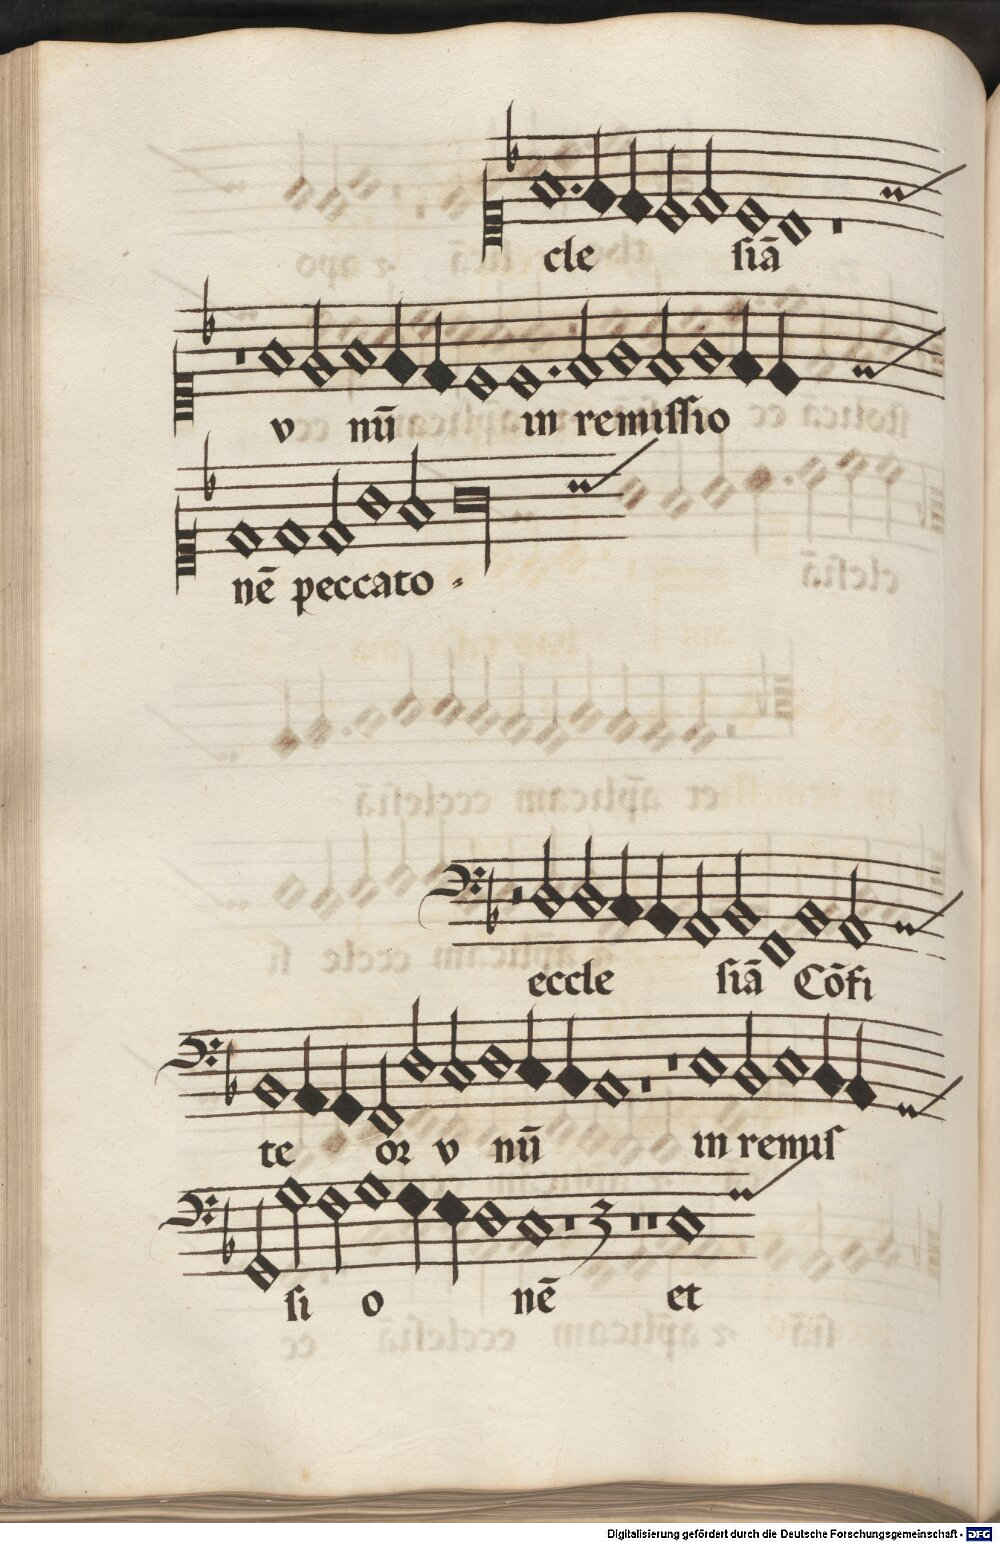 cle ſiā
v nū in remiſſio
nē peccato
eccle ſiā Cōfi
te oꝛ v nū in remiſ
ſi o nē et
Digitalisierung gefördert durch die Deutsche Forschungsgemeinschaft - DFG